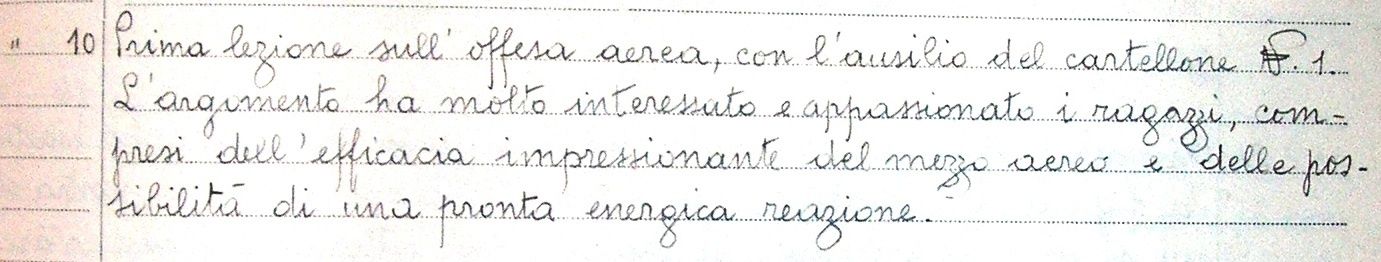 " 10 Prima lezione sull'offesa aerea, con l'ausilio del cartellone N. 1.
L'argomento ha molto interessato e appassionato i ragazzi, com-
presi dell'efficacia impressionante del mezzo aereo e delle pos-
sibilità di una pronta energica reazione.